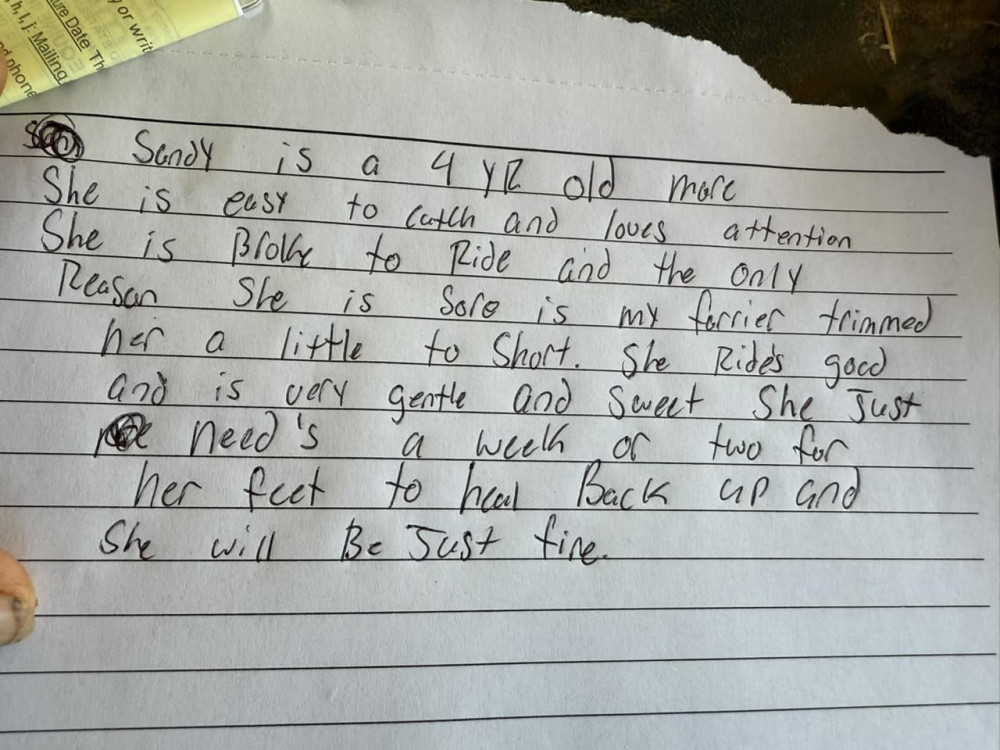 y or writ
ure Date. Th
h, I, j: Mailing
phone
Sandy is a 4 YR old mare
She is easy to catch and loves attention
She is Broke to Ride and the only
Reason She is Sore is my farrier trimmed
her a little to Short. She Ride's good
and is very gentle and Sweet She Just
need's a week or two for
her feet to heal Back up and
She will Be Just fine.